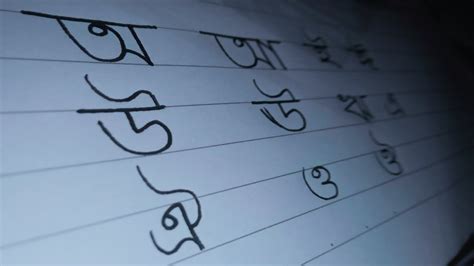 অ আ ই ঈ
উ ঊ ঋ এ
ঐ ও ঔ